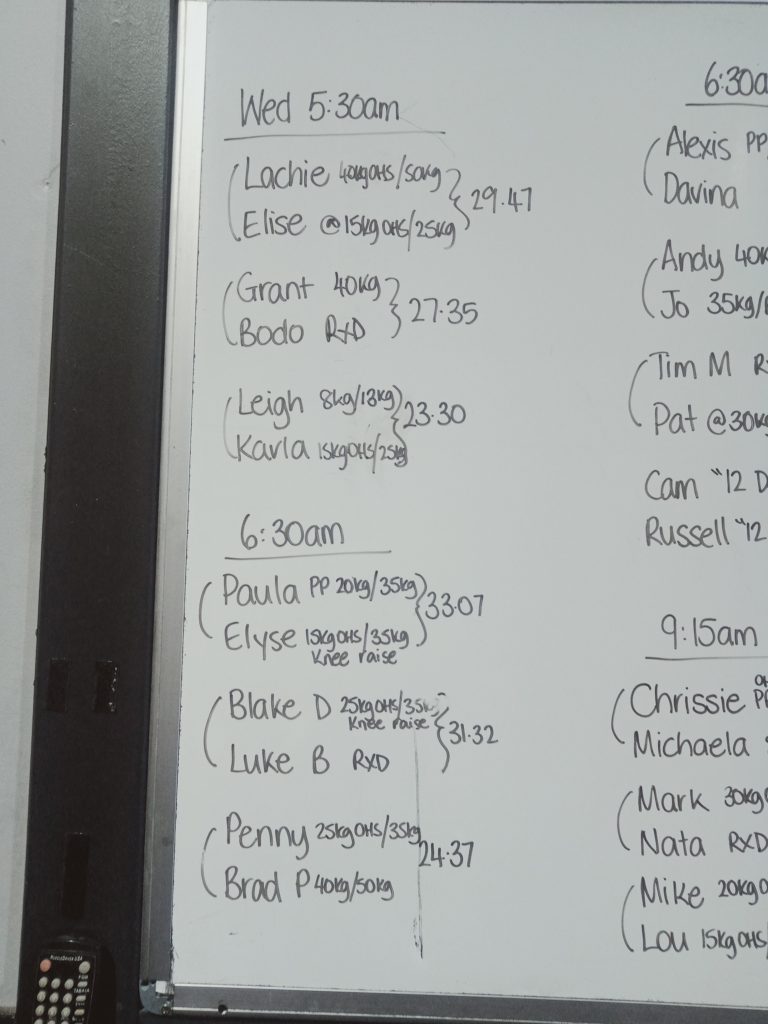 Wed 5:30am
Lachie 40kgOHS/50kg
Elise @15kgOHS/25kg
29.47
Grant 40kg
Bodo RXD
27.35
Leigh 8kg/13kg
Karla 15kgOHS/25kg
23.30
6:30am
Paula PP 20kg/35kg
Elyse 15kgOHS/35kg
Knee raise
33.07
Blake D 25kgOHS/35
Knee raise
Luke B RXD
31.32
Penny 25kgOHS/35kg
Brad P 40kg/50kg
24.37
6:30a
Alexis PP
Davina
Andy 40k
Jo 35kg/
Tim M R
Pat @30kg
Cam "12 D
Russell "12
9:15am
Chrissie
Michaela
Mark 30kg
Nata RXD
Mike 20kg
Lou 15kgOHS/